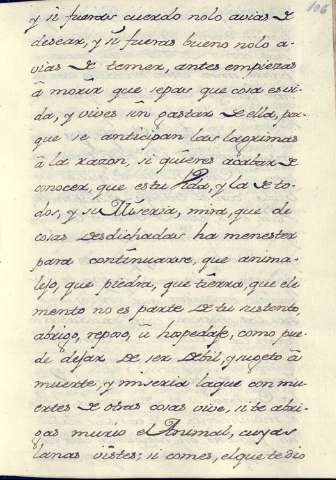 106
y si fueras cuerdo nolo avias de
desear, y si fueras bueno nolo a-
vias de temer, antes empiezas
â morir que sepas que cosa es vi-
da, y vives sin gustar de ella, por-
que se anticipan las lagrimas
â la razon, si quieres acabar de
conocer, que es tu Vida, y la de to-
dos, y su Miseria, mira, que de
cosas desdichadas ha menester
para continuarse, que anima-
lejo, que piedra, que tierra, que ele
mento no es parte de tu sustento,
abrigo, reposo, û hospedaje, como pue-
de dejar de ser debil, y sugeto â
muerte, y miseria la que con mu-
ertes de otras cosas vive, si te abri-
gas murio el Animal, cuyas
lanas vistes; si comes, el que te dio